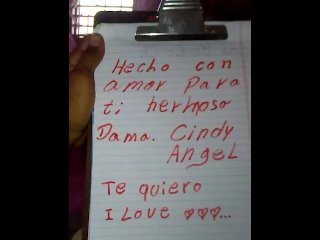 Hecho con
amor Para
ti hermosa
Dama. Cindy
Angel
Te quiero
I Love ♡♡♡...